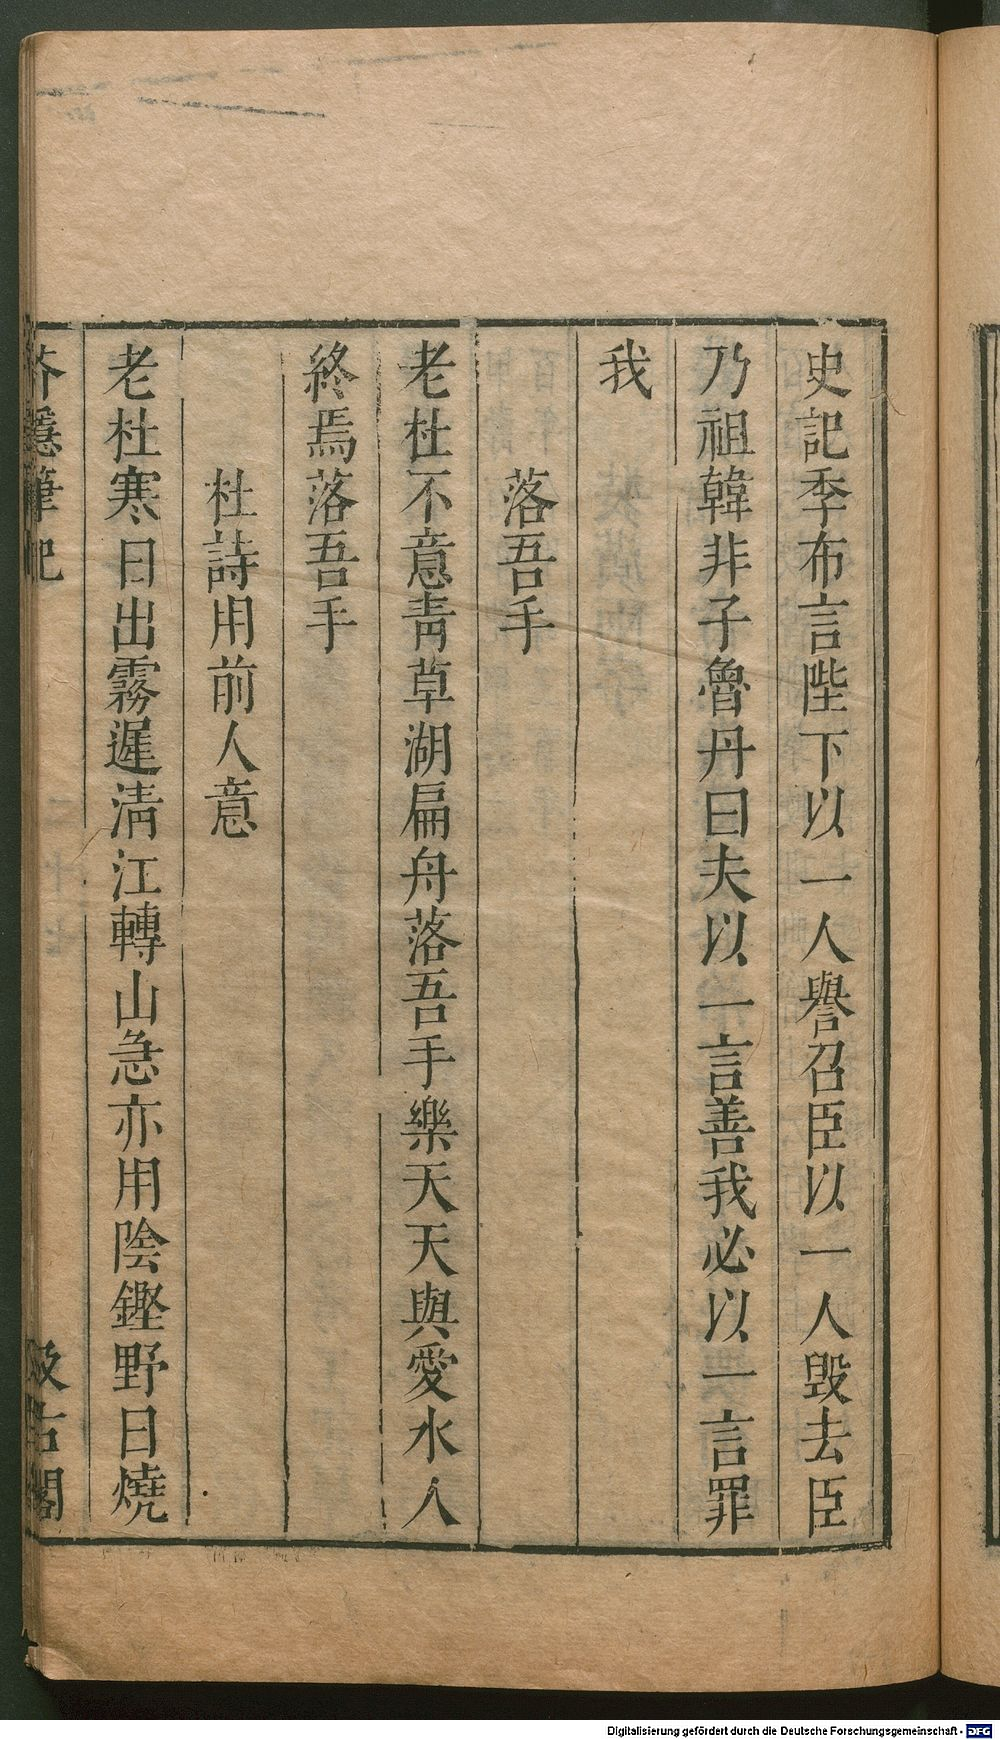 史記季布言陛下以一人譽召臣以一人毀去臣
乃祖韓非子魯丹曰夫以一言善我必以一言罪
我
落吾手
老杜不意青草湖扁舟落吾手樂天天與愛水人
終焉落吾手
杜詩用前人意
老杜寒日出霧遲清江轉山急亦用陰鏗野日燒
芥隱筆記
汲古閣
Digitalisierung gefördert durch die Deutsche Forschungsgemeinschaft - DFG